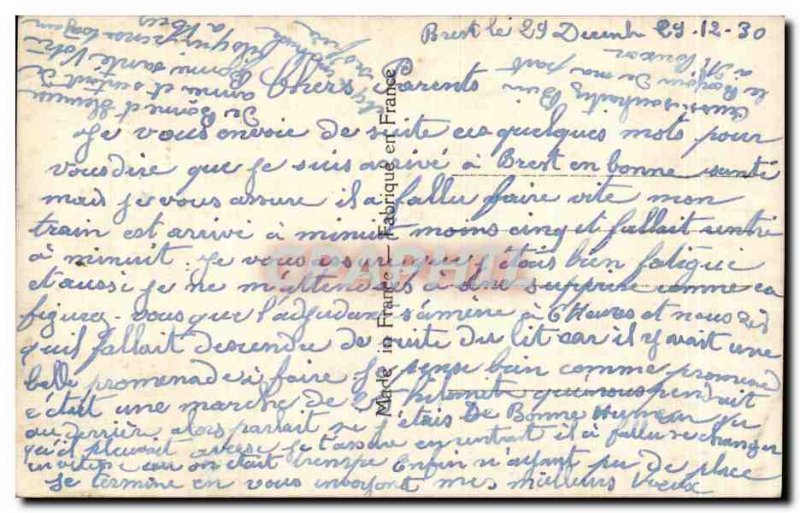 Brest le 29 Decembre 29-12-30
Chers Parents
Je vous envoie de suite ces quelques mots pour
vous dire que je suis arrivé à Brest en bonne santé
mais je vous assure il a fallu faire vite mon
train est arrivé à minuit moins cinq et fallait rentre
à minuit. Je vous assure que j'étais bien fatigué
et aussi je ne m'attendais à une surprise comme ca
figurez-vous que l'adjudant s'amène à 6 Heures et nous dit
qu'il fallait descendre de suite du lit car il y avait une
belle promenade à faire Je pense bien comme promenade
c'était une marche de kilometre
au derrière alors parrait je j'étais De Bonne Humeur
qu'il pleuvait averse Je t'assure en rentrant il a fallu se changer
en vitesse car on était trempé Enfin n'ayant pu de place
Je termine en vous envoyant mes meilleurs Voeux
De Bonne et Heureuse
année et surtout de
Bonne santé Votre
fils qui pense toujours
a Vous
le Bonjour De ma part
à M
Made in France - Fabrique en France
CPAPHIL